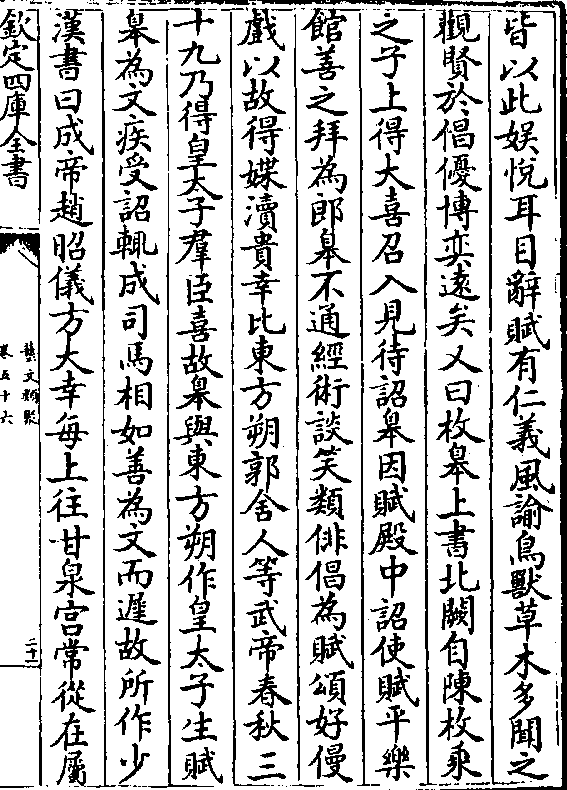 皆以此娱悅耳目辭賦有仁義風諭鳥獸草木多聞之
觀賢於倡優博奕遠矣又曰枚皋上書北闕自陳枚乘
之子上得大喜召入見待詔皋因賦殿中詔使賦平樂
館善之拜為郎皋不通經術談笑類俳倡為賦頌好僈
戲以故得媟瀆貴幸比東方朔郭舍人等武帝春秋三
十九乃得皇太子羣臣喜故皋與東方朔作皇太子生賦
皋為文疾受詔輒成司馬相如善為文而遲故所作少
漢書曰成帝趙昭儀方大幸每上往甘泉宫常從在屬
欽定四庫全書
藝文類聚
卷五十六
二十二